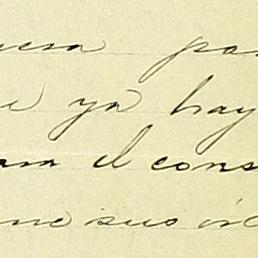 uesa pa
e ya hay
ara el cons
me sus in